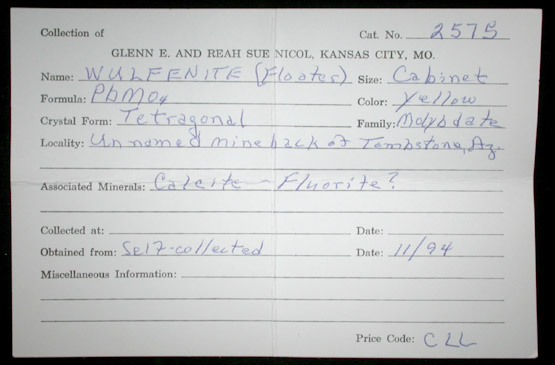 Collection of Cat. No. 2575
GLENN E. AND REAH SUE NICOL, KANSAS CITY, MO.
Name: WULFENITE (Floater) Size: Cabinet
Formula: PbMO4 Color: Yellow
Crystal Form: Tetragonal Family: Molybdate
Locality: Unnamed mine back of Tombstone, Az.
Associated Minerals: Calcite - Fluorite?
Collected at: Date:
Obtained from: Self-collected Date: 11/94
Miscellaneous Information:
Price Code: CLL